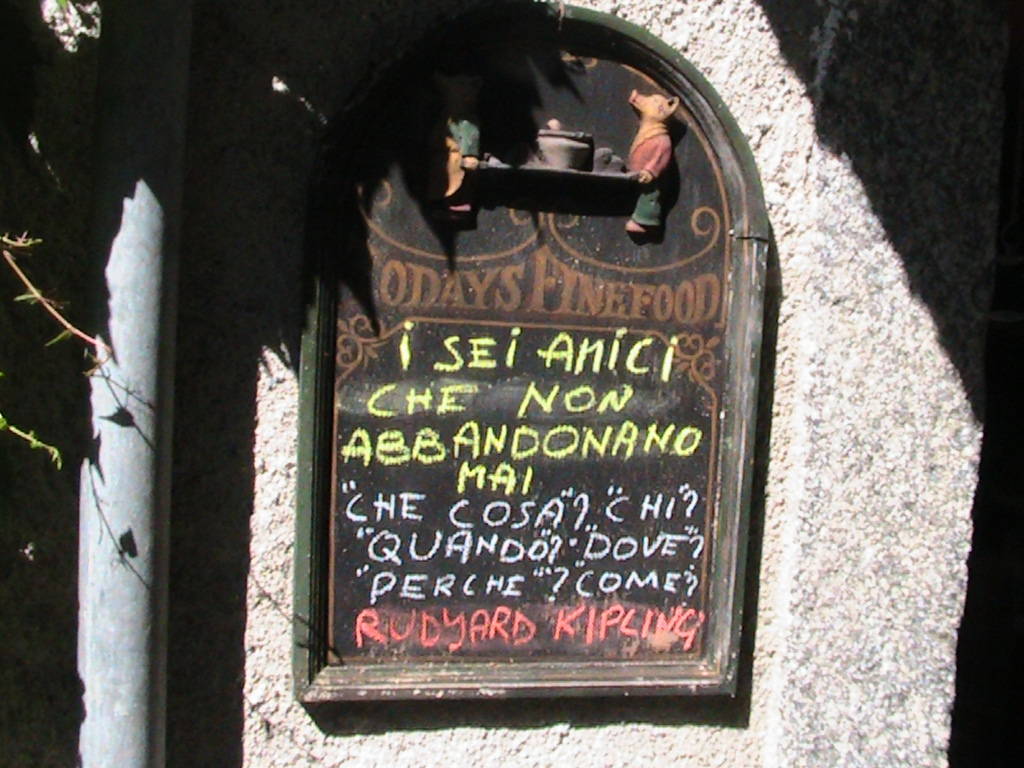 TODAYS FINE FOOD
I SEI AMICI
CHE NON
ABBANDONANO
MAI
"CHE COSA"? "CHI"?
"QUANDO"? "DOVE"?
"PERCHE"? "COME"?
RUDYARD KIPLING